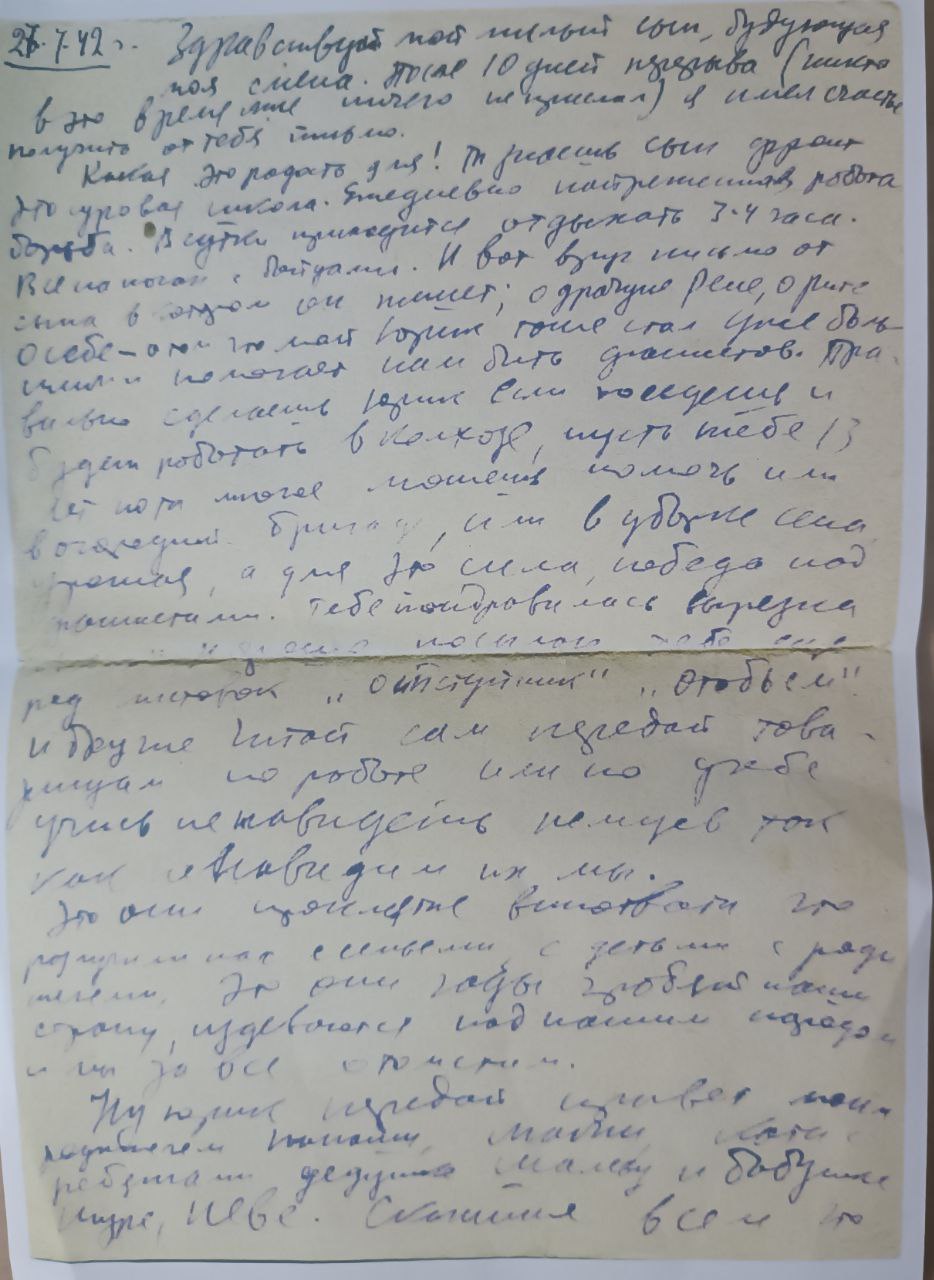 26.7.42 г. Здравствуй мой милый сын, будующая
моя смена. После 10 дней перерыва (никто
в это время мне ничего не прислал) я имел счастье
получить от тебя письмо.
Какая это радость для! Ты знаешь сын фронт
это суровая школа. Ежедневно напряженная работа
борьба. В сутки приходится отдыхать 3-4 часа.
Все на ногах с бойцами. И вот вдруг письмо от
сына в котором он пишет; о дедушке о Рите
о себе – о том что мой Юрик тоже стал уже боль-
шим и помогает нам бить фашистов. Пра-
вильно сделаешь Юрик если поедешь и
будеш работать в колхозе, пусть тебе 13
лет но ты многое можешь помочь или
в огородной бригаде, или в уборке сена,
урожая, а для это сила, победа над
фашистами. Тебе понравилась вырезка
посылаю тебе еще
ряд вырезок „Отступник" „Отобьем"
и другие Читай сам передай това-
рищам по работе или по учебе
учись ненавидеть немцев так
как ненавидим их мы.
Это они проклятые виноваты что
разлучили нас с семьями, с детьми с роди
телями. Это они гады грабят нашу
страну, издеваются над нашим народом
и мы за все отомстим.
Ну Юрик передай привет моим
родителям папаши, мамаши,
ребятам дедушке и бабушке
Шуре, Неве. Скажи всем что